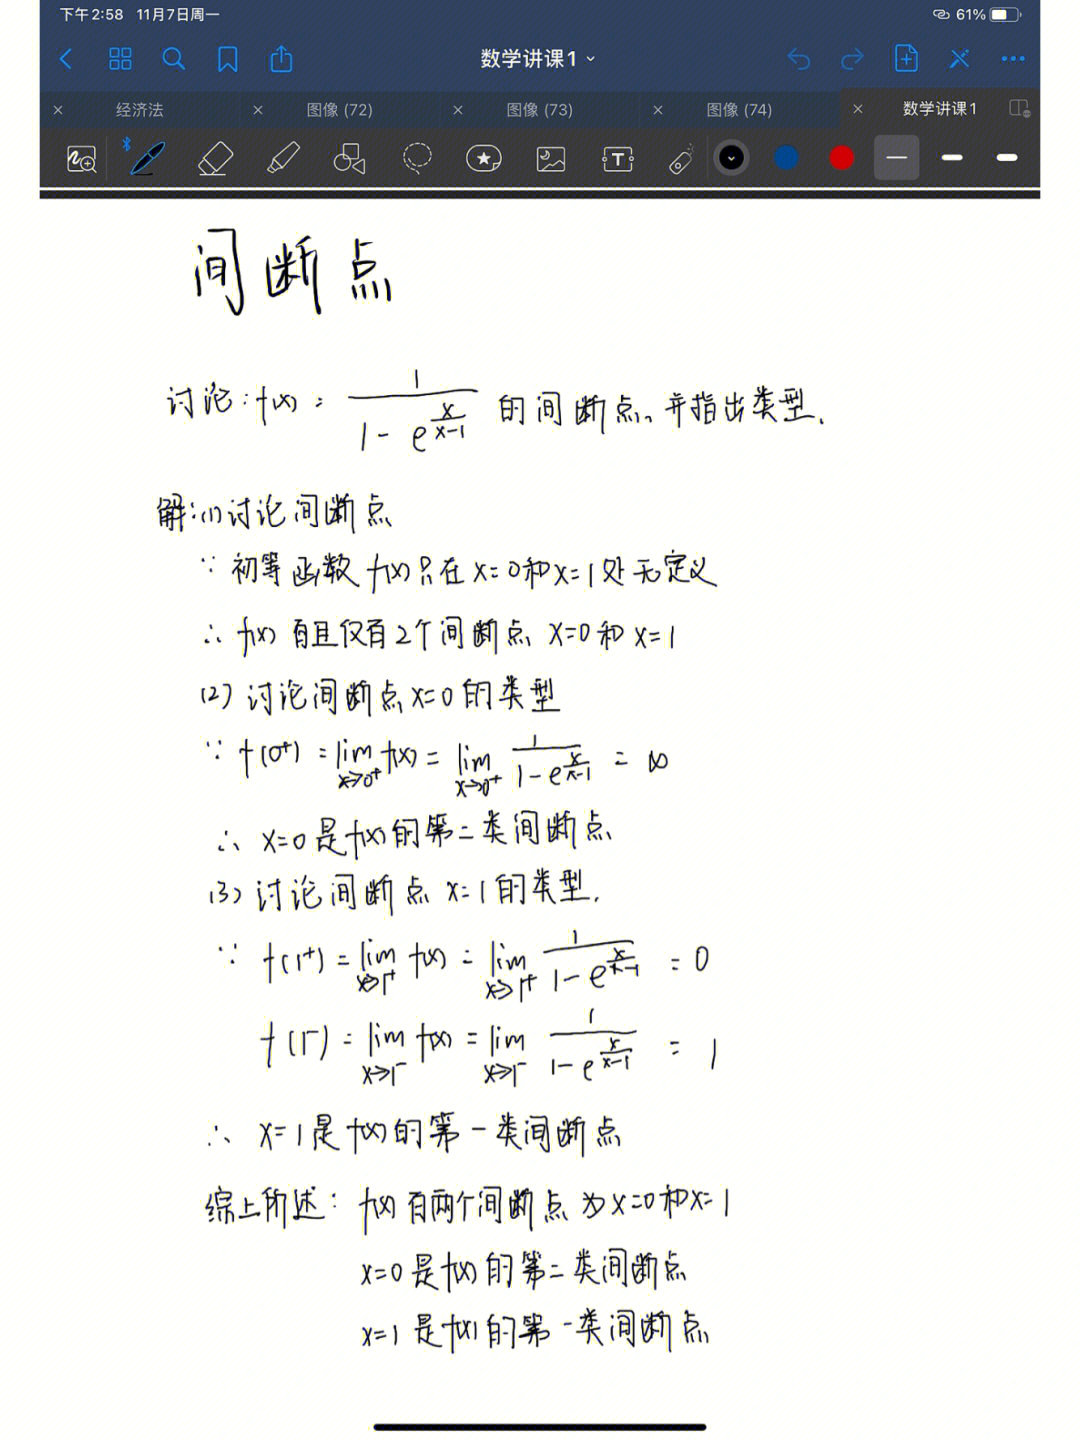 下午2:58 11月7日周一 61%
数学讲课1
经济法 图像 (72) 图像 (73) 图像 (74) 数学讲课1
T
间断点
讨论:f(x) = 1/(1-e^(x/(x-1))) 的间断点、并指出类型.
解:(1)讨论间断点
∵ 初等函数 f(x)只在 x=0和x=1处无定义
∴ f(x) 有且仅有2个间断点 x=0和 x=1
(2) 讨论间断点 x=0 的类型
∵ f(0⁺) = lim x→0⁺ f(x) = lim x→0⁺ 1/(1-e^(x/(x-1))) = ∞
∴ x=0是f(x)的第二类间断点
(3) 讨论间断点 x=1的类型.
∵ f(1⁺) = lim x→1⁺ f(x) = lim x→1⁺ 1/(1-e^(x/(x-1))) = 0
f(1⁻) = lim x→1⁻ f(x) = lim x→1⁻ 1/(1-e^(x/(x-1))) = 1
∴ x=1是f(x)的第一类间断点
综上所述: f(x)有两个间断点为x=0和x=1
x=0是f(x)的第二类间断点
x=1是f(x)的第一类间断点